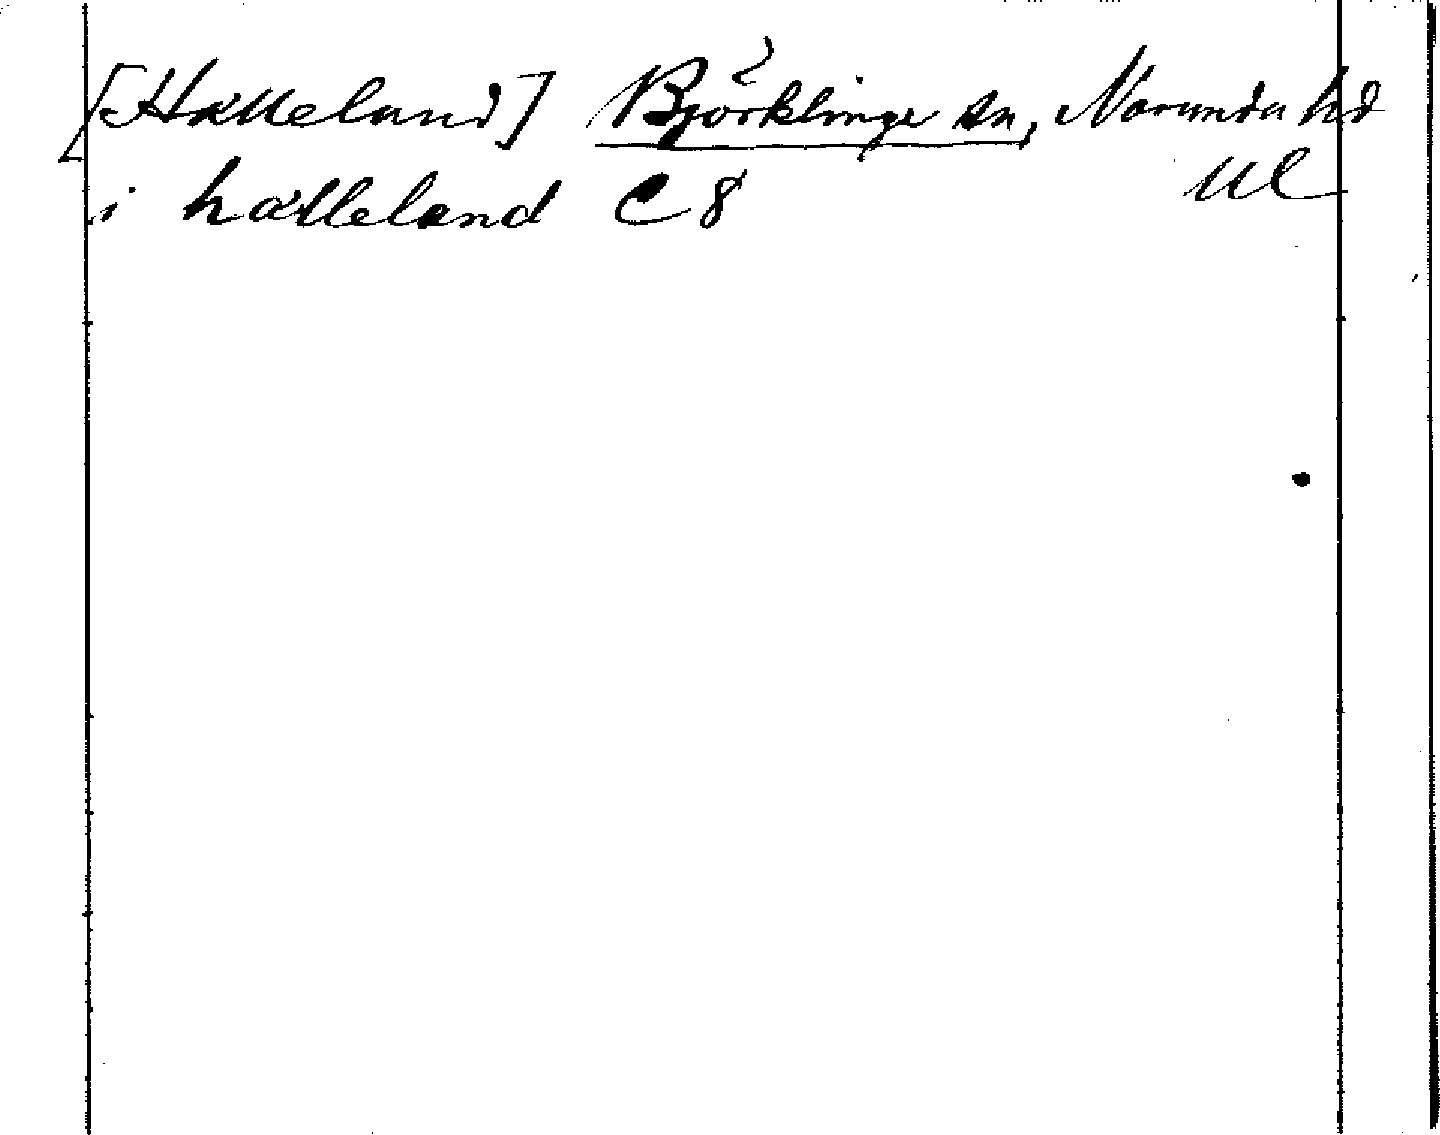 [Hälleland] Björklinge sn, Norunda hd
2
Ul
i hälleland C 8